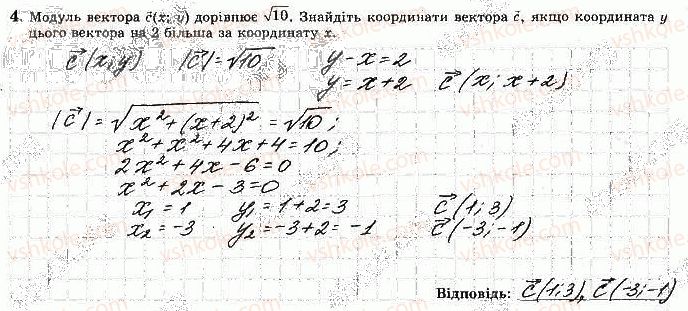 4. Модуль вектора c⃗(x; y) дорівнює √10. Знайдіть координати вектора c⃗, якщо координата y
цього вектора на 2 більша за координату x.
c⃗ (x; y) |c⃗| = √10 y - x = 2
y = x + 2 c⃗ (x; x+2)
|c⃗| = √(x² + (x+2)²) = √10;
x² + x² + 4x + 4 = 10;
2x² + 4x - 6 = 0
x² + 2x - 3 = 0
x₁ = 1 y₁ = 1 + 2 = 3 c⃗ (1; 3)
x₂ = -3 y₂ = -3 + 2 = -1 c⃗ (-3; -1)
Відповідь: c⃗ (1; 3), c⃗ (-3; -1)